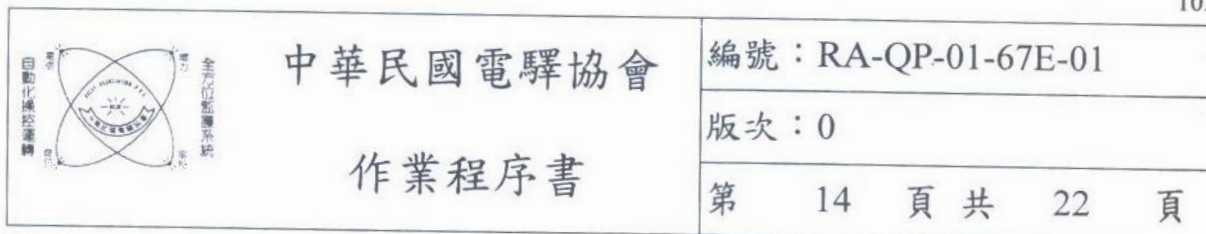 自動化操控運轉
全方位監護系統
中華民國電驛協會
作業程序書
編號：RA-QP-01-67E-01
版次：0
第 14 頁 共 22 頁